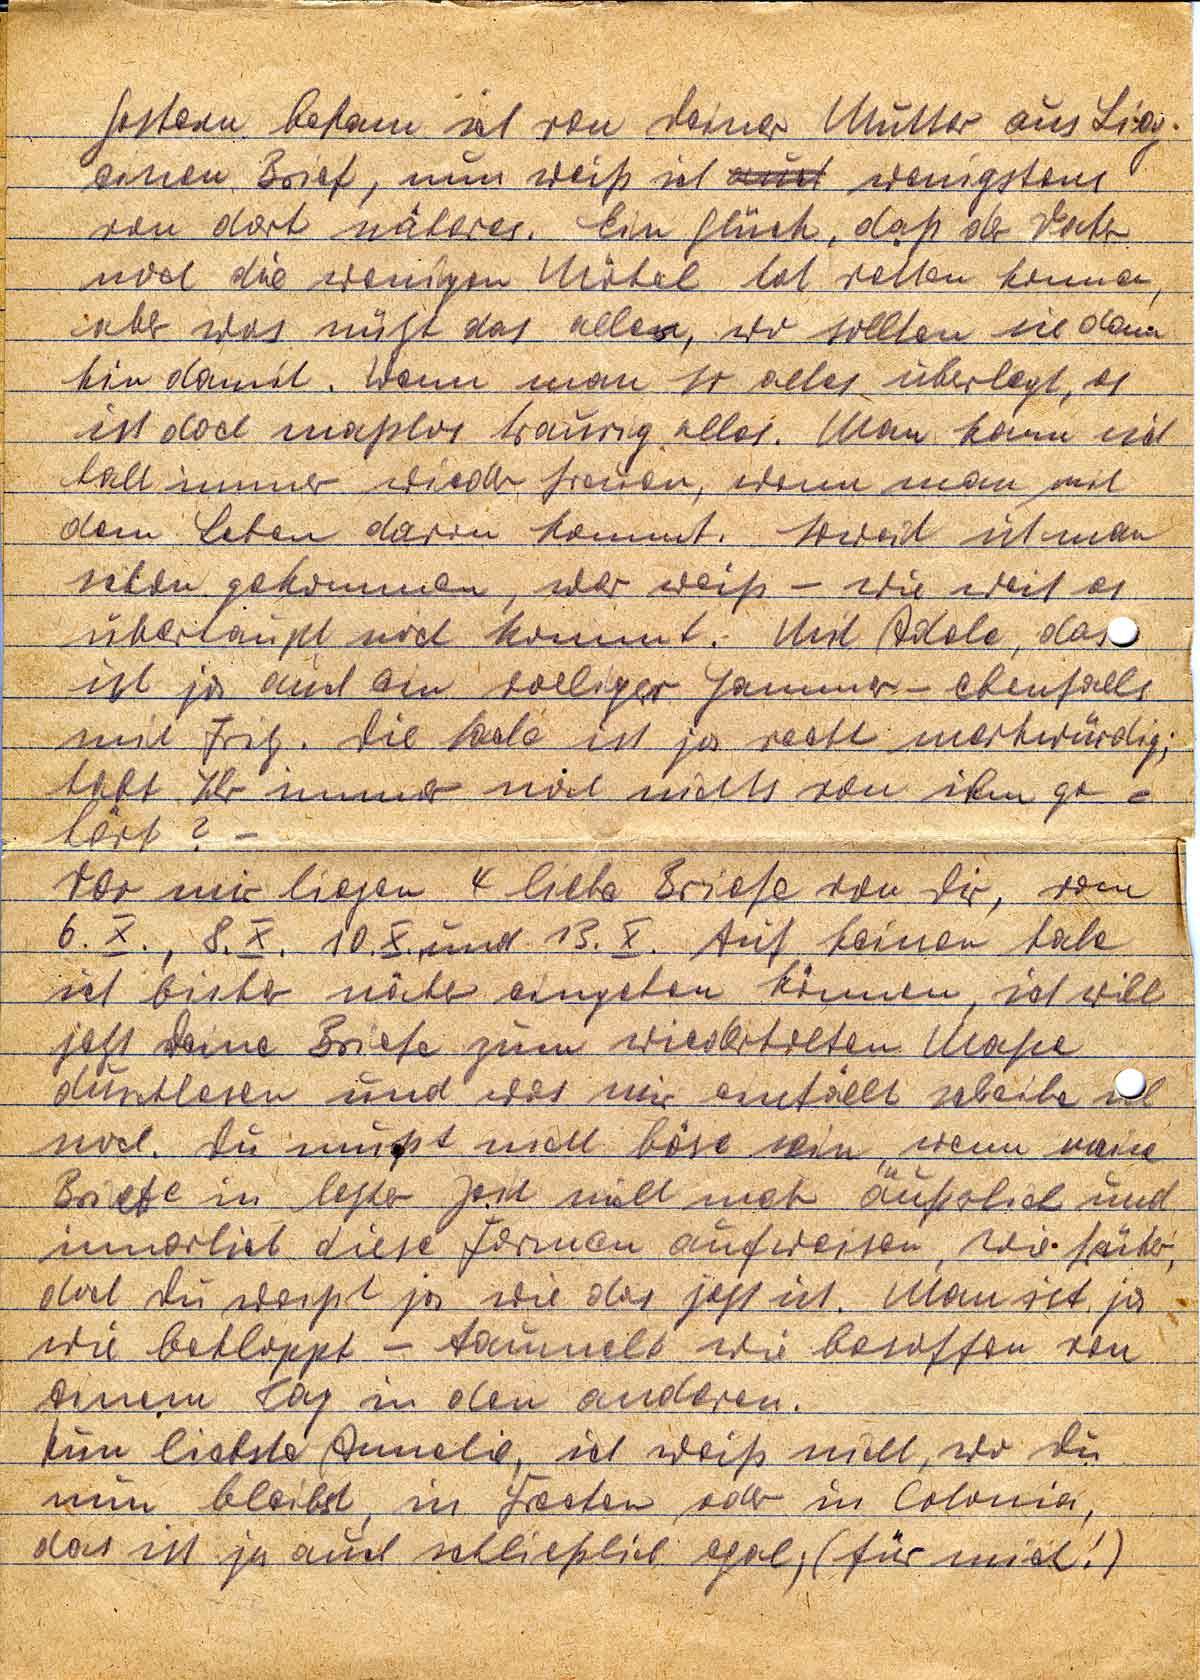 Gestern bekam ich von Deiner Mutter aus Lieg.
einen Brief, nun weiß ich auch wenigstens
von dort näheres. Ein Glück, daß der Vater
noch die wenigen Möbel hat retten können,
aber was nützt das alles, wo sollten sie dann
hin damit. Wenn man so alles überlegt, es
ist doch maßlos traurig alles. Man kann sich
halt immer wieder freuen, wenn man mit
dem Leben davon kommt. Soweit ist man
schon gekommen, wer weiß – wie weit es
überhaupt noch kommt. Und Adele, das
ist ja auch ein völliger Jammer – ebenfalls
mit Fritz. Die Sache ist ja recht merkwürdig;
habt Ihr immer noch nichts von ihm ge=
hört? –
Vor mir liegen 4 liebe Briefe von Dir, vom
6. X., 8. X. 10. X. und 13. X. Auf keinen habe
ich bisher näher eingehen können, ich will
jetzt Deine Briefe zum wiederholten Maße
durchlesen und was mir einfällt schreibe ich
noch. Du mußt nicht böse sein, wenn meine
Briefe in letzter Zeit nicht mehr äußerlich und
innerlich diese Formen aufweisen, wie früher,
doch Du weißt ja wie das jetzt ist. Man ist ja
wie bekloppt – taumelt wie besoffen von
einem Tag in den anderen.
Nun liebste Annelie, ich weiß nicht, wo Du
nun bleibst, in oder in Colonia,
das ist ja auch schließlich egal, (für mich!)